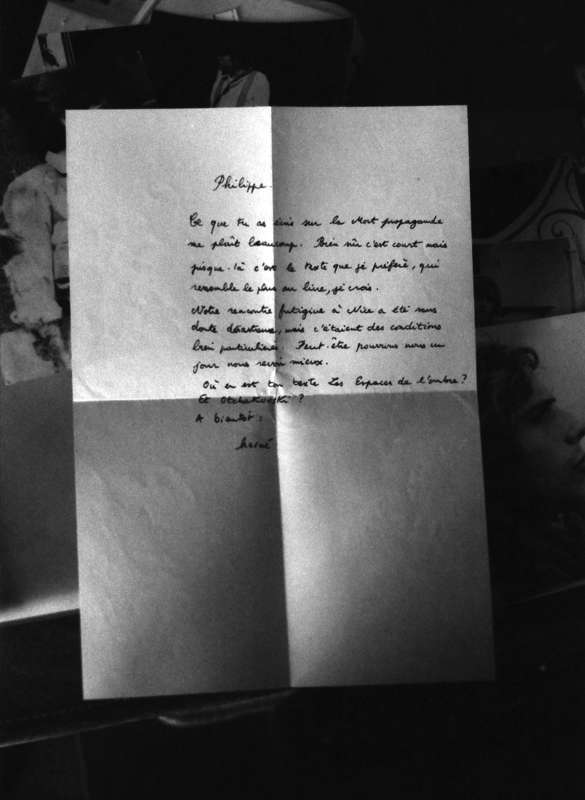 Philippe.
Ce que tu as écris sur la Mort propagande
me plaît beaucoup. Bien sûr c'est court mais
jusque-là c'est le texte que je préfère, qui
ressemble le plus au livre, je crois.
Notre rencontre fatigue à Nice a été sans
doute désastreuse, mais c'étaient des conditions
bien particulières. Peut-être pourrons nous un
jour nous revoir mieux.
Où en est ton texte Les Espaces de l'ombre?
Et ?
A bientôt.
hervé